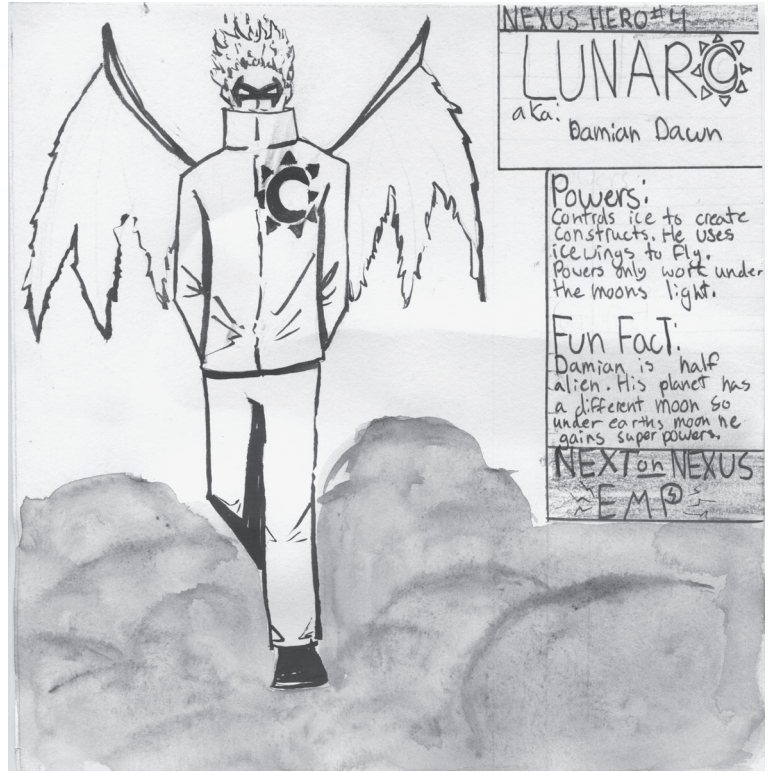 NEXUS HERO #4
LUNAR
aka:
Damian Dawn
Powers:
Controls ice to create
constructs. He uses
ice wings to fly.
Powers only work under
the moons light.
Fun Fact:
Damian is half
alien. His planet has
a different moon so
under earths moon he
gains super powers.
NEXT on NEXUS
EMP